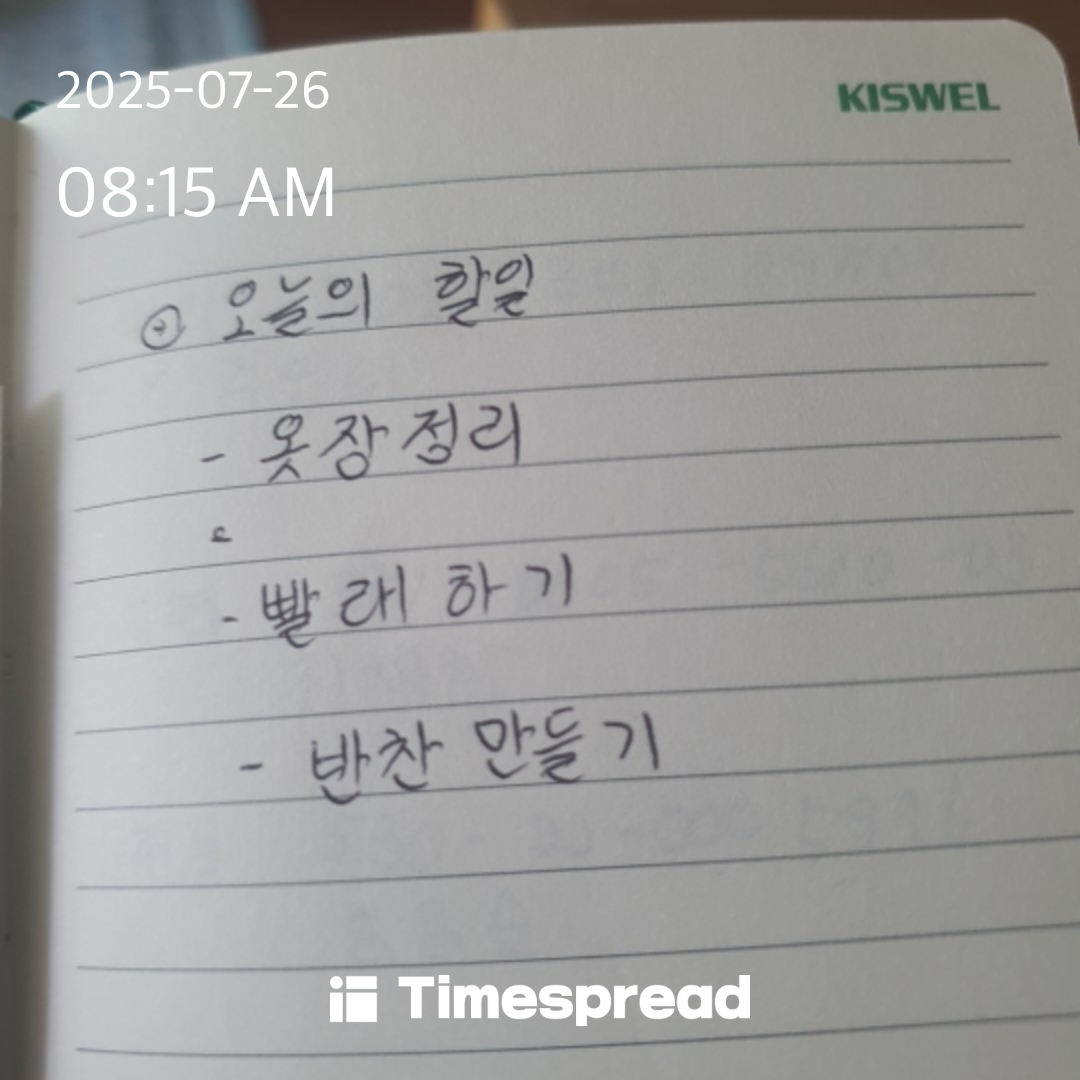 2025-07-26
KISWEL
08:15 AM
⊙ 오늘의 할일
- 옷장정리
- 빨래 하기
- 반찬 만들기
Timespread